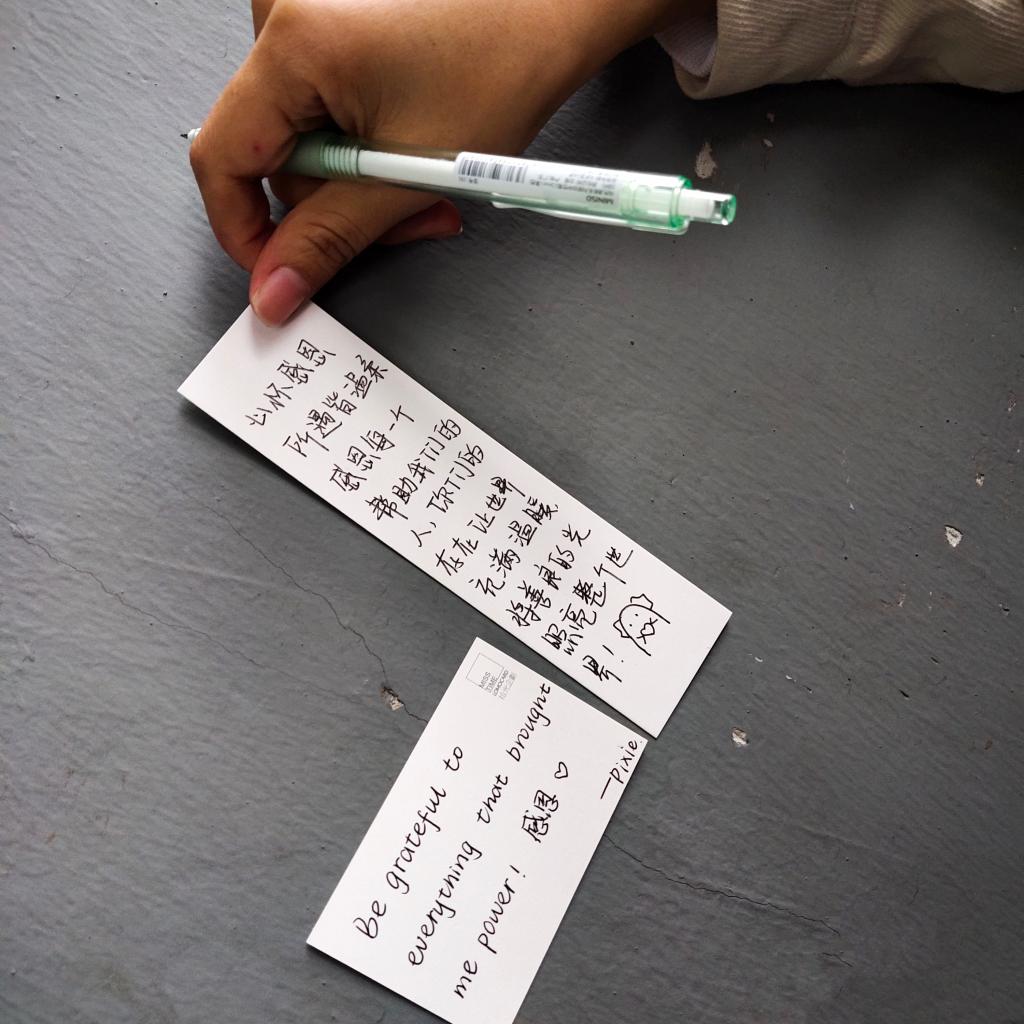 心怀感恩
所遇皆温柔
感恩每一个
帮助我们的
人，你们的
存在让世界
充满温暖
将善良的光
照亮整个世
界！
MISS
TIME
LOMOCARD
be grateful to
everything that brought
me power! 感恩♡
—Pixie.
MINISO